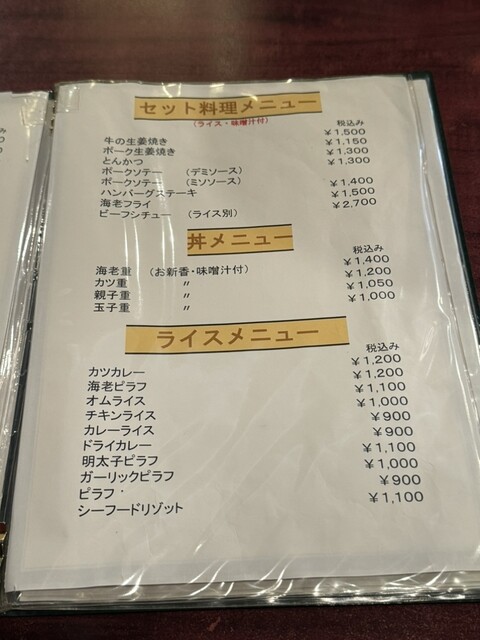 セット料理メニュー
(ライス・味噌汁付)
税込み
牛の生姜焼き ¥1,500
ポーク生姜焼き ¥1,150
とんかつ ¥1,300
ポークソテー (デミソース) ¥1,300
ポークソテー (ミソソース)
ハンバーグステーキ ¥1,400
海老フライ ¥1,500
ビーフシチュー (ライス別) ¥2,700
丼メニュー
税込み
海老重 (お新香・味噌汁付) ¥1,400
カツ重 〃 ¥1,200
親子重 〃 ¥1,050
玉子重 〃 ¥1,000
ライスメニュー
税込み
カツカレー ¥1,200
海老ピラフ ¥1,200
オムライス ¥1,100
チキンライス ¥1,000
カレーライス ¥900
ドライカレー ¥900
明太子ピラフ ¥1,100
ガーリックピラフ ¥1,000
ピラフ ¥900
シーフードリゾット ¥1,100